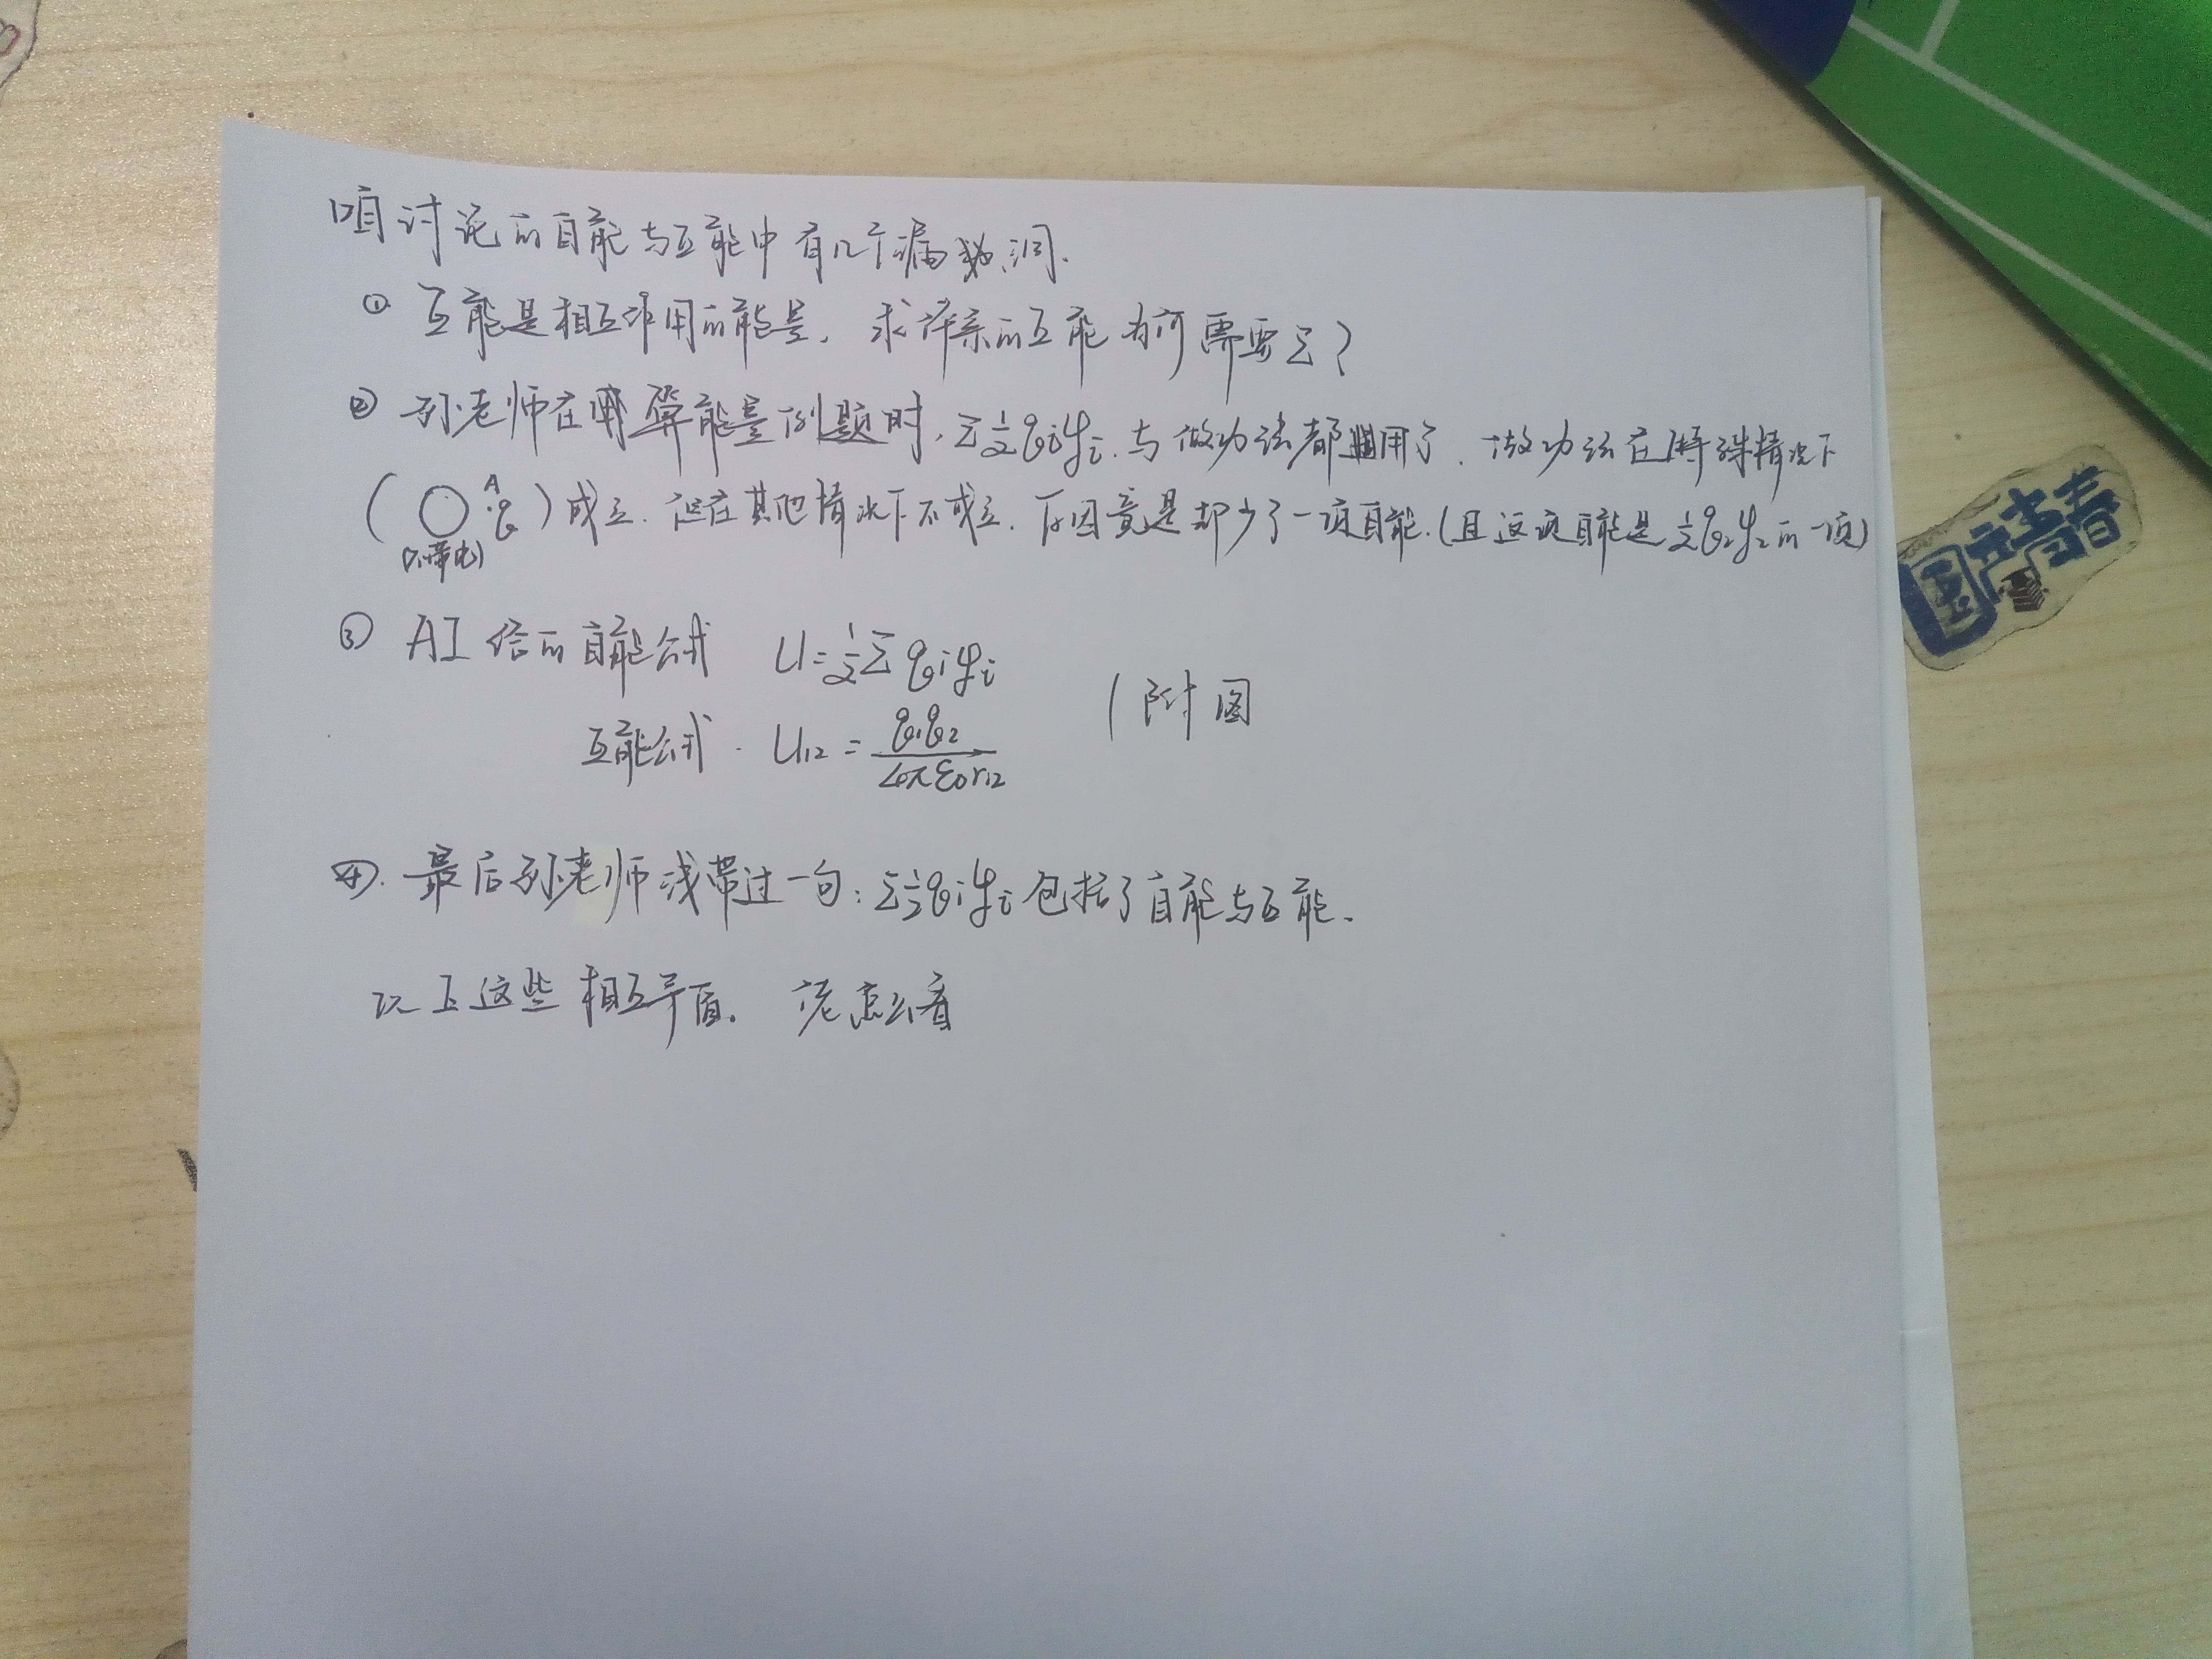 咱讨论的自能与互能中有几个漏洞.
① 互能是相互作用的能量, 求体系的互能为何需要它?
② 孙老师在算能量例题时, Σ½qᵢφᵢ 与做功法都用了. 做功法在特殊情况下
( A .q ) 成立. 但在其他情况下不成立. 原因竟是却少了一项自能. (且这项自能是½q₂φ₂的一项)
(不带电)
③ AI给的自能公式 U=½Σqᵢφᵢ
(附图
互能公式. U₁₂=q₁q₂/4πε₀r₁₂
④. 最后孙老师浅带过一句: Σ½qᵢφᵢ包括了自能与互能.
以上这些相互矛盾. 您怎么看
国产青春